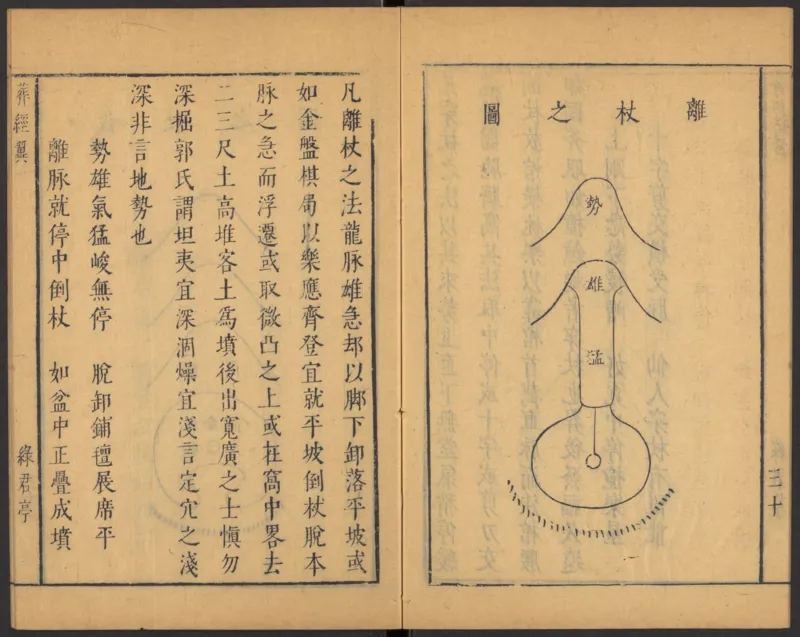 離杖之圖
勢
雄
猛
三十
凡離杖之法龍脉雄急却以脚下卸落平坡或
如金盤棋局以樂應齊登宜就平坡倒杖脫本
脉之急而浮遷或取微凸之上或在窩中畧去
二三尺土高堆客土為墳後出寬廣之士慎勿
深掘郭氏謂坦夷宜深涸燥宜淺言定穴之淺
深非言地勢也
勢雄氣猛峻無停　脫卸鋪氊展席平
離脉就停中倒杖　如盆中正疊成墳
葬經翼
綠君亭